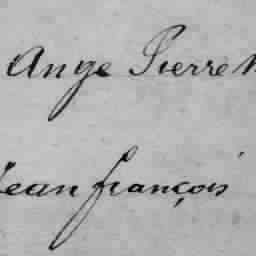 Ange Pierre M
Jean françois